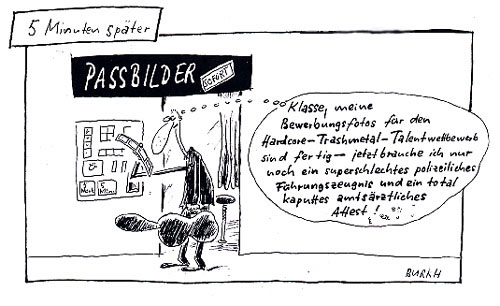 5 Minuten später
PASSBILDER
SOFORT
Klasse, meine
Bewerbungsfotos für den
Hardcore-Trashmetal-Talentwettbewerb
sind fertig – jetzt brauche ich nur
noch ein superschlechtes polizeiliches
Führungszeugnis und ein total
kaputtes amtsärztliches
Attest!
BURKH